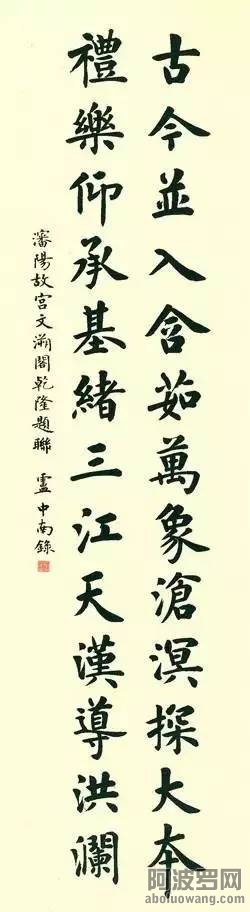 古今並入含茹萬象滄溟探大本
禮樂仰承基緒三江天漢導洪瀾
瀋陽故宫文溯閣乾隆題聯 盧中南錄
阿波罗网
aboluowang.com